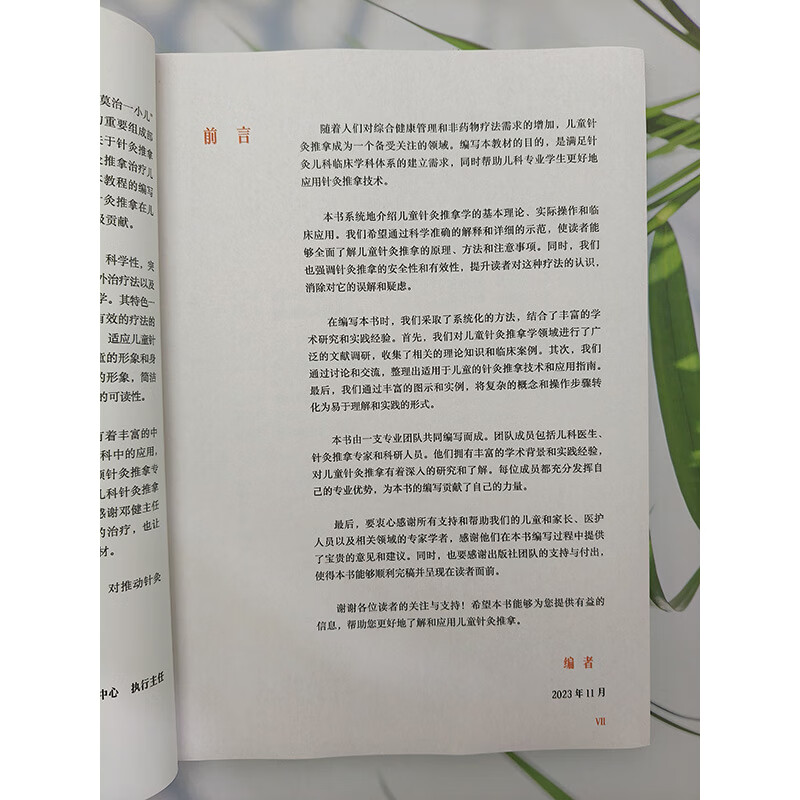 莫治一小儿"
重要组成部
关于针灸推拿
灸推拿治疗儿
本教程的编写
针灸推拿在儿
及贡献。
科学性，突
外治疗法以及
学。其特色一
有效的疗法的
适应儿童针
童的形象和身
的形象，简洁
的可读性。
有着丰富的中
科中的应用，
针灸推拿专
儿科针灸推拿
感谢邓健主任
的治疗，也让
材。
对推动针灸
中心 执行主任
前言
随着人们对综合健康管理和非药物疗法需求的增加，儿童针
灸推拿成为一个备受关注的领域。编写本教材的目的，是满足针
灸儿科临床学科体系的建立需求，同时帮助儿科专业学生更好地
应用针灸推拿技术。
本书系统地介绍儿童针灸推拿学的基本理论、实际操作和临
床应用。我们希望通过科学准确的解释和详细的示范，使读者能
够全面了解儿童针灸推拿的原理、方法和注意事项。同时，我们
也强调针灸推拿的安全性和有效性，提升读者对这种疗法的认识，
消除对它的误解和疑虑。
在编写本书时，我们采取了系统化的方法，结合了丰富的学
术研究和实践经验。首先，我们对儿童针灸推拿学领域进行了广
泛的文献调研，收集了相关的理论知识和临床案例。其次，我们
通过讨论和交流，整理出适用于儿童的针灸推拿技术和应用指南。
最后，我们通过丰富的图示和实例，将复杂的概念和操作步骤转
化为易于理解和实践的形式。
本书由一支专业团队共同编写而成。团队成员包括儿科医生、
针灸推拿专家和科研人员。他们拥有丰富的学术背景和实践经验，
对儿童针灸推拿有着深入的研究和了解。每位成员都充分发挥自
己的专业优势，为本书的编写贡献了自己的力量。
最后，要衷心感谢所有支持和帮助我们的儿童和家长、医护
人员以及相关领域的专家学者，感谢他们在本书编写过程中提供
了宝贵的意见和建议。同时，也要感谢出版社团队的支持与付出，
使得本书能够顺利完稿并呈现在读者面前。
谢谢各位读者的关注与支持！希望本书能够为您提供有益的
信息，帮助您更好地了解和应用儿童针灸推拿。
编者
2023年11月
VII